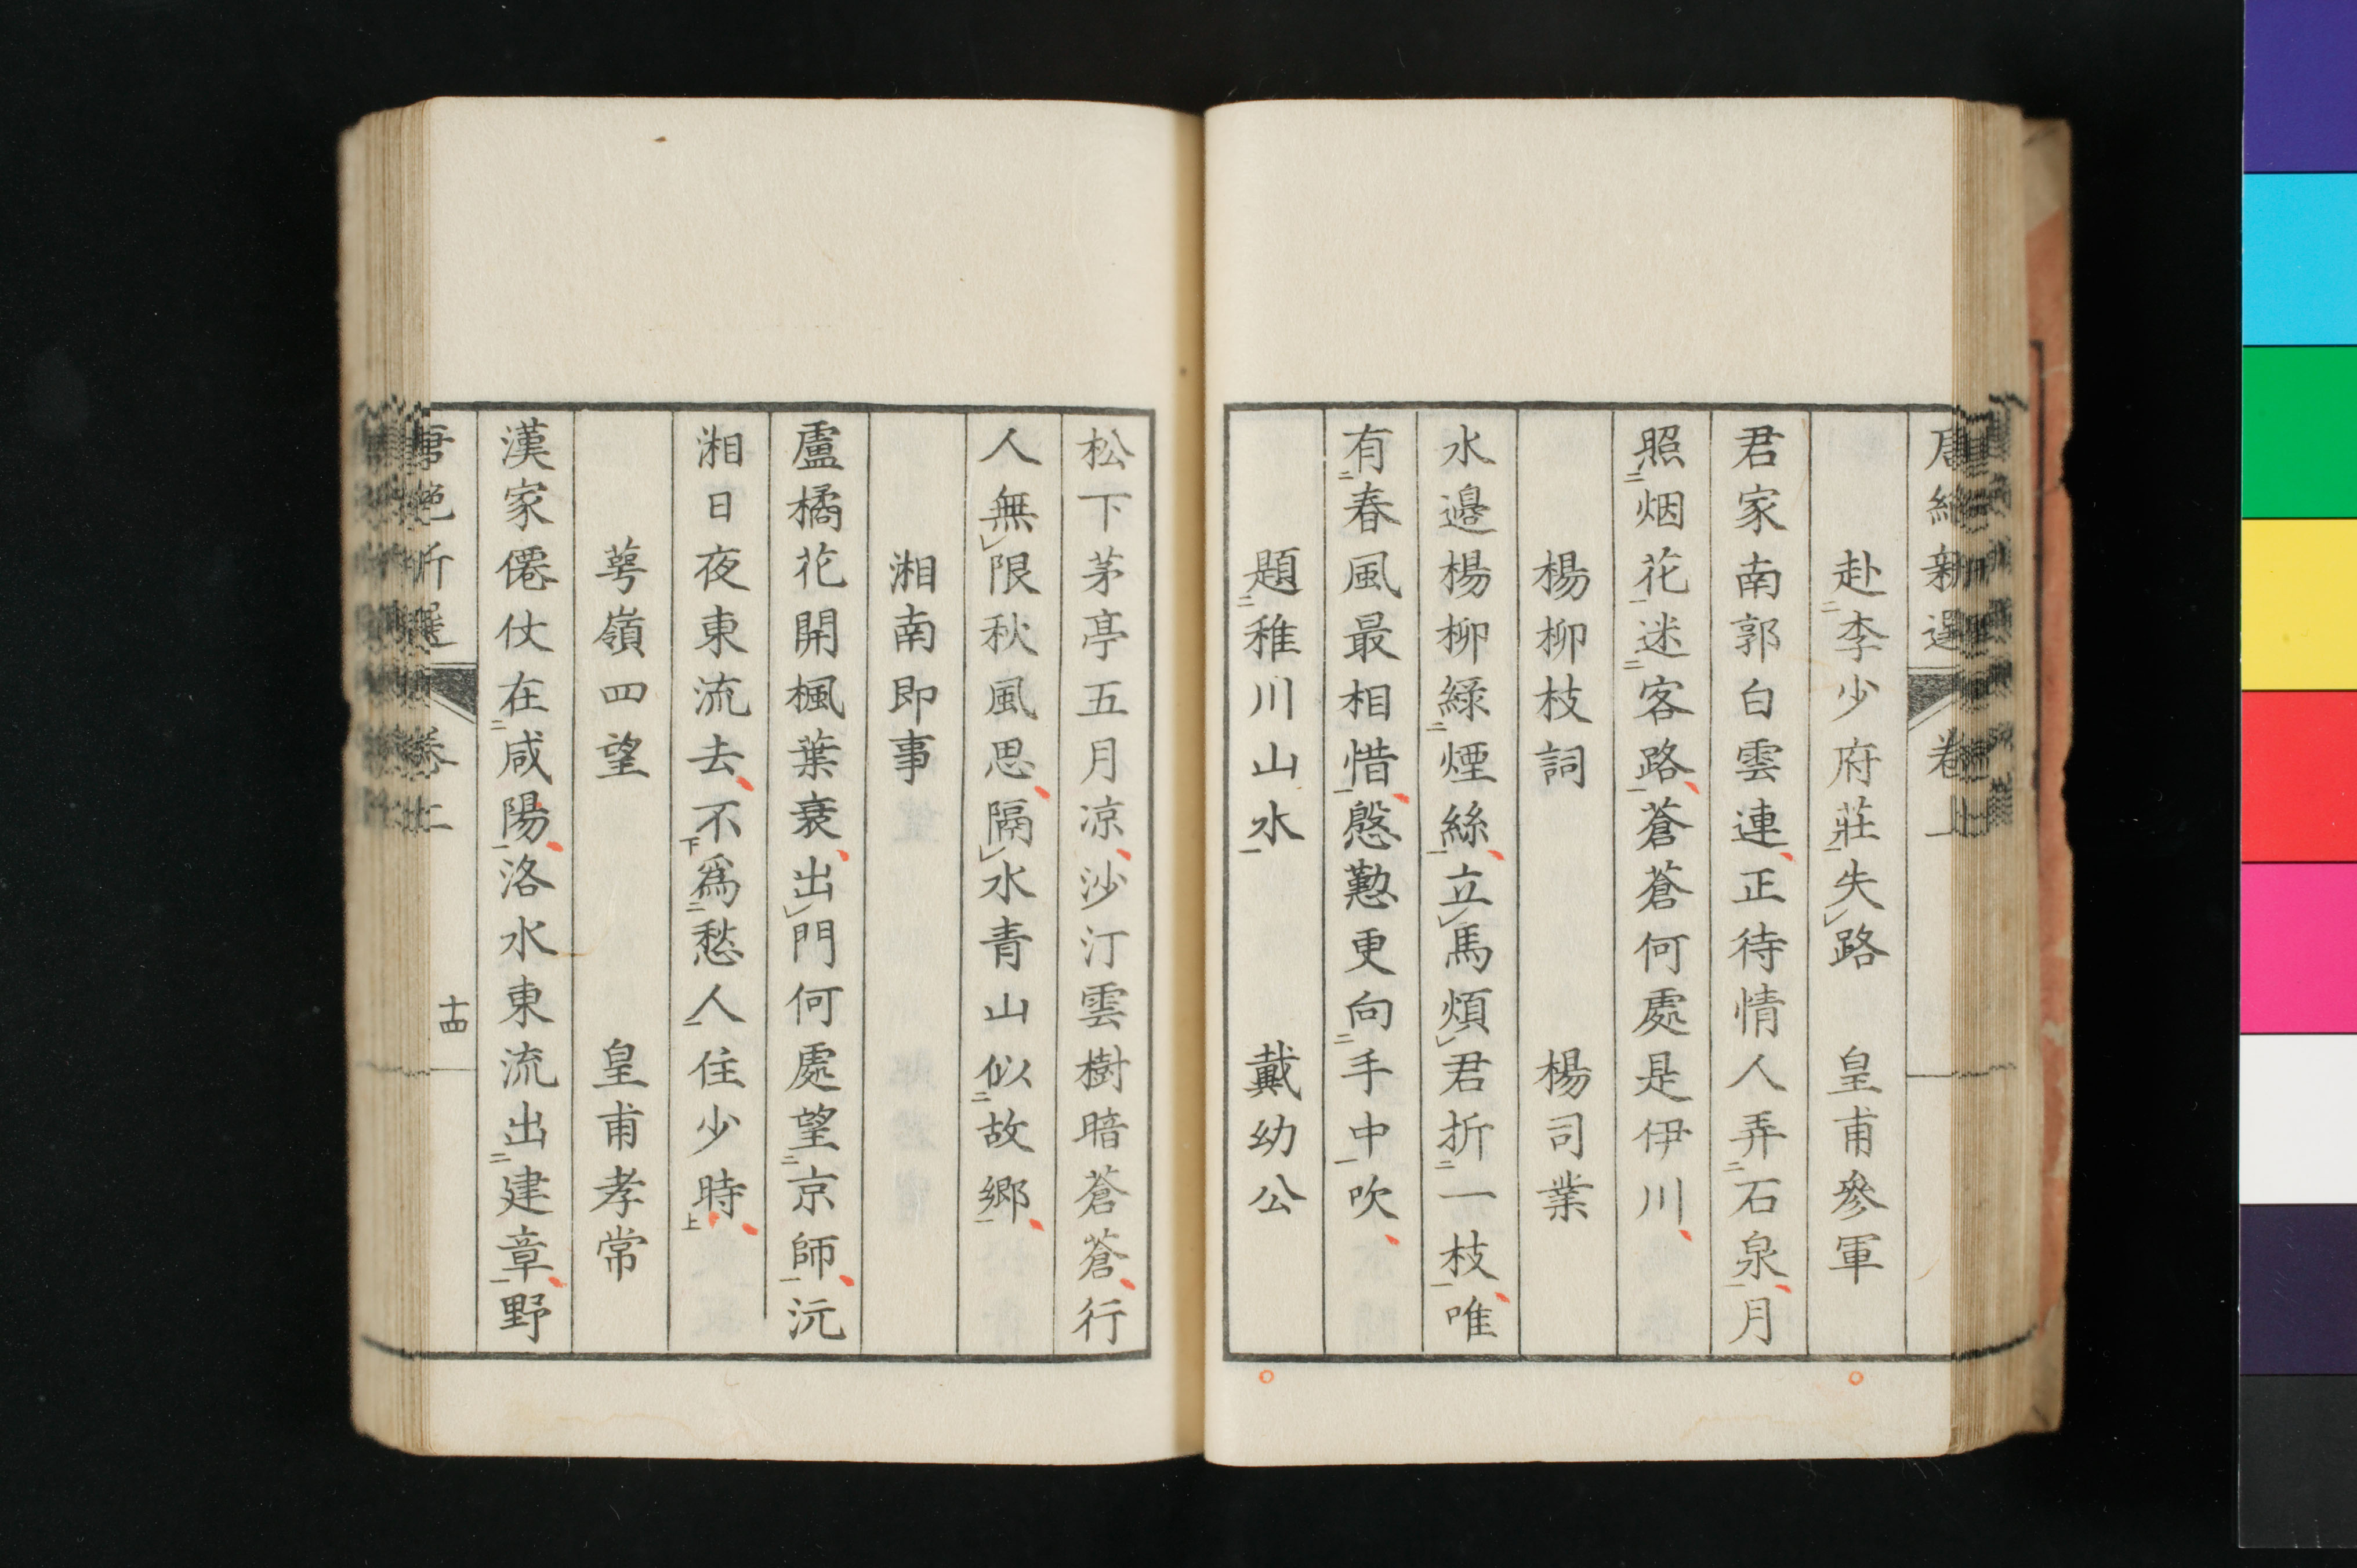 唐絶新選 卷上
赴二李少府莊一失レ路 皇甫參軍
君家南郭白雲連正待情人弄二石泉一月
照二烟花一迷二客路一蒼蒼何處是伊川
楊柳枝詞 楊司業
水邊楊柳綠二煙絲一立レ馬煩レ君折二一枝一唯
有二春風最相惜一慇懃更向二手中一吹
題二稚川山水一 戴幼公
松下茅亭五月凉沙汀雲樹暗蒼蒼行
人無レ限秋風思隔レ水青山似二故鄉一
湘南即事
盧橘花開楓葉衰出レ門何處望二京師一沅
湘日夜東流去不下爲二愁人一住少時上
萼嶺四望 皇甫孝常
漢家僊仗在二咸陽一洛水東流出二建章一野
唐絶新選 卷上 十四